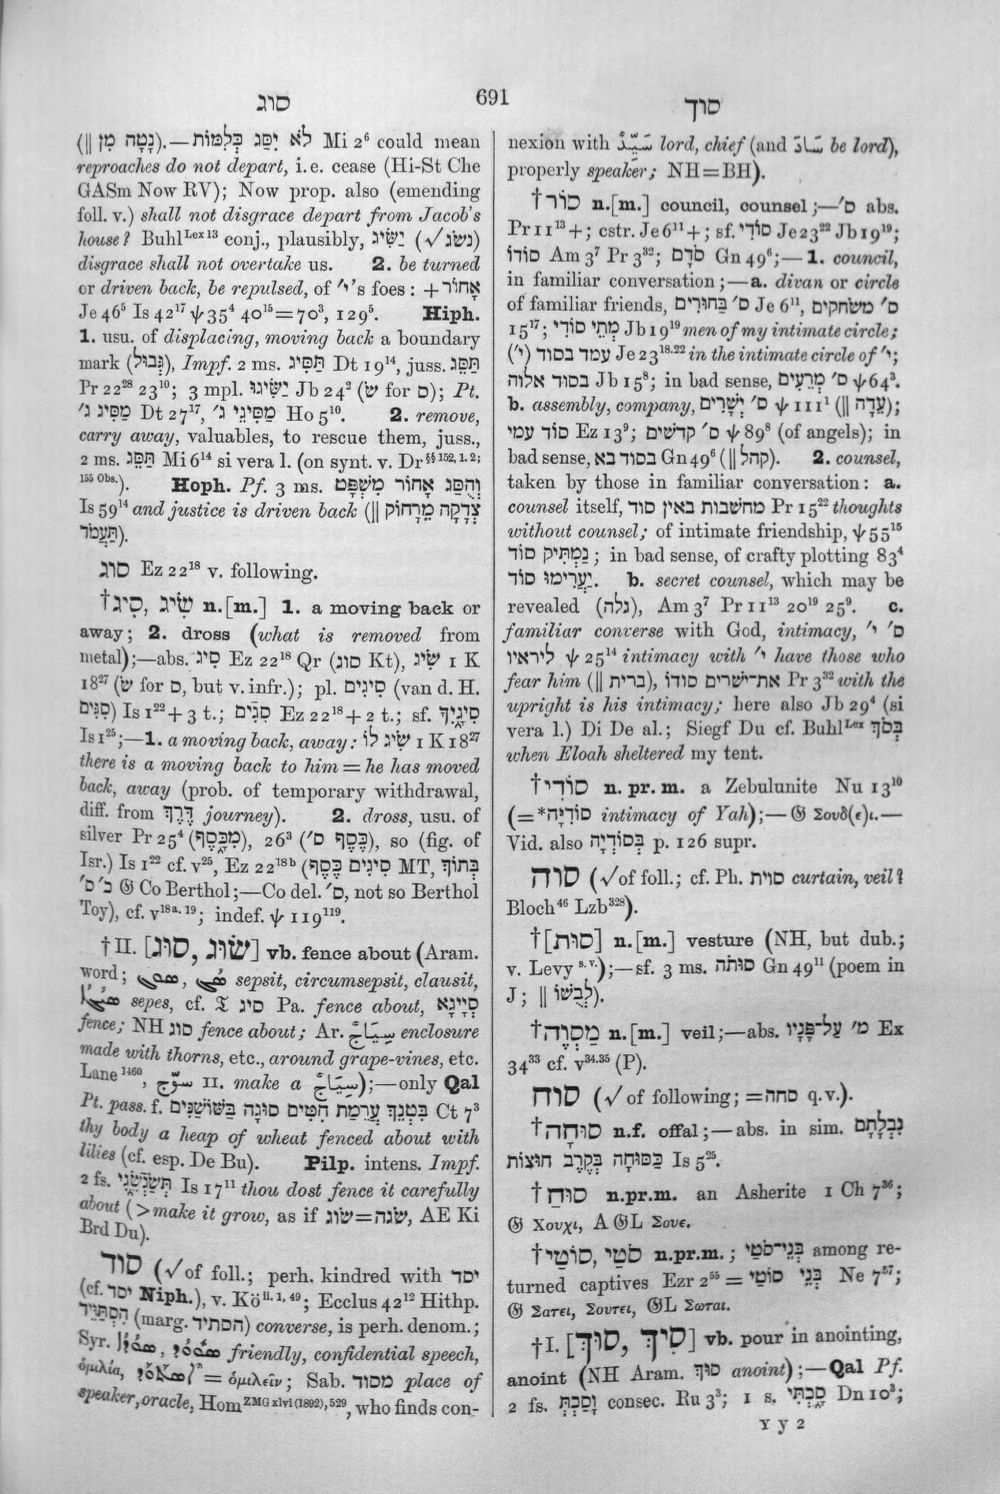 סוג
691
סוך
(נָטָה מִן ||).—לֹא יִסַּג כְּלִמּוֹת Mi 2⁶ could mean
reproaches do not depart, i.e. cease (Hi-St Che
GASm Now RV); Now prop. also (emending
foll. v.) shall not disgrace depart from Jacob's
house? Buhl Lex 13 conj., plausibly, יַשִּׂיג (√נשׂג)
disgrace shall not overtake us. 2. be turned
or driven back, be repulsed, of י״'s foes: + אָחוֹר
Je 46⁵ Is 42¹⁷ ψ 35⁴ 40¹⁵=70³, 129⁵. Hiph.
1. usu. of displacing, moving back a boundary
mark (גְּבוּל), Impf. 2 ms. תַּסִּיג Dt 19¹⁴, juss. תַּסֵּג
Pr 22²⁸ 23¹⁰; 3 mpl. יַשִּׂיגוּ Jb 24² (שׂ for ס); Pt.
מַסִּיג ג׳ Dt 27¹⁷, מַסִּיגֵי ג׳ Ho 5¹⁰. 2. remove,
carry away, valuables, to rescue them, juss.,
2 ms. תַּסֵּג Mi 6¹⁴ si vera l. (on synt. v. Dr §§ 152, 1. 2;
155 Obs.). Hoph. Pf. 3 ms. וְהֻסַּג אָחוֹר מִשְׁפָּט
Is 59¹⁴ and justice is driven back (|| צְדָקָה מֵרָחוֹק
תַּעֲמֹד).
סוג Ez 22¹⁸ v. following.
†סִיג, שִׂיג n.[m.] 1. a moving back or
away; 2. dross (what is removed from
metal);—abs. סִיג Ez 22¹⁸ Qr (סוג Kt), שִׂיג 1 K
18²⁷ (שׂ for ס, but v. infr.); pl. סִיגִים (van d. H.
סִגִּים) Is 1²² + 3 t.; סִגִים Ez 22¹⁸ + 2 t.; sf. סִיגַיִךְ
Is 1²⁵;—1. a moving back, away: שִׂיג לוֹ 1 K 18²⁷
there is a moving back to him = he has moved
back, away (prob. of temporary withdrawal,
diff. from דֶּרֶךְ journey). 2. dross, usu. of
silver Pr 25⁴ (מִכָּסֶף), 26³ (כֶּסֶף ס׳), so (fig. of
Isr.) Is 1²² cf. v²⁵, Ez 22¹⁸ᵇ (סִיגִים כֶּסֶף MT, בְּתוֹךְ
כ׳ ס׳ 𝔊 Co Berthol;—Co del. ס׳, not so Berthol
Toy), cf. v¹⁸ᵃ·¹⁹; indef. ψ 119¹¹⁹.
†II. [סוּג, שׂוּג] vb. fence about (Aram.
word; sepsit, circumsepsit, clausit,
sepes, cf. 𝔗 סיג Pa. fence about, סְיָיגָא
fence; NH סוג fence about; Ar. سِيَاجٌ enclosure
made with thorns, etc., around grape-vines, etc.
Lane 1460, سوّج II. make a سِيَاجٌ);—only Qal
Pt. pass. f. בִּטְנֵךְ עֲרֵמַת חִטִּים סוּגָה בַּשּׁוֹשַׁנִּים Ct 7³
thy body a heap of wheat fenced about with
lilies (cf. esp. De Bu). Pilp. intens. Impf.
2 fs. תְּשַׂגְשֵׂגִי Is 17¹¹ thou dost fence it carefully
about (>make it grow, as if שׂוג=שׂגה, AE Ki
Brd Du).
סוד (√of foll.; perh. kindred with יסד
(cf. יסד Niph.), v. Kö ii. 1, 49; Ecclus 42¹² Hithp.
הִסְתַּיֵּיד (marg. הסתיד) converse, is perh. denom.;
Syr. friendly, confidential speech,
ὁμιλία, = ὁμιλεῖν; Sab. מסוד place of
speaker, oracle, Hom ZMG xlvi (1892), 529, who finds con-
nexion with سَيِّدٌ lord, chief (and سَادَ be lord),
properly speaker; NH=BH).
†סוֹד n.[m.] council, counsel;—ס׳ abs.
Pr 11¹³ +; cstr. Je 6¹¹ +; sf. סוֹדִי Je 23²² Jb 19¹⁹;
סוֹדוֹ Am 3⁷ Pr 3³²; סֹדָם Gn 49⁶;—1. council,
in familiar conversation;—a. divan or circle
of familiar friends, ס׳ בַּחוּרִים Je 6¹¹, ס׳ משׂחקים
15¹⁷; מְתֵי סוֹדִי Jb 19¹⁹ men of my intimate circle;
עמד בסוד (י״) Je 23¹⁸·²² in the intimate circle of י״;
בסוד אלוה Jb 15⁸; in bad sense, ס׳ מְרֵעִים ψ 64³.
b. assembly, company, ס׳ יְשָׁרִים ψ 111¹ (|| עֵדָה);
סוֹד עמי Ez 13⁹; ס׳ קדשׁים ψ 89⁸ (of angels); in
bad sense, בא בסוד Gn 49⁶ (|| קהל). 2. counsel,
taken by those in familiar conversation: a.
counsel itself, מחשׁבות באין סוד Pr 15²² thoughts
without counsel; of intimate friendship, ψ 55¹⁵
נַמְתִּיק סוֹד; in bad sense, of crafty plotting 83⁴
יַעֲרִימוּ סוֹד. b. secret counsel, which may be
revealed (גלה), Am 3⁷ Pr 11¹³ 20¹⁹ 25⁹. c.
familiar converse with God, intimacy, ס׳ י״
ליראיו ψ 25¹⁴ intimacy with י״ have those who
fear him (|| ברית), את־ישׁרים סודו Pr 3³² with the
upright is his intimacy; here also Jb 29⁴ (si
vera l.) Di De al.; Siegf Du cf. Buhl Lex בְּסֹךְ
when Eloah sheltered my tent.
†סוֹדִי n. pr. m. a Zebulunite Nu 13¹⁰
(=*סוֹדִיָּה intimacy of Yah);—𝔊 Σουδ(ε)ι.—
Vid. also בְּסוֹדְיָה p. 126 supr.
סוה (√of foll.; cf. Ph. סוית curtain, veil?
Bloch⁴⁶ Lzb³²⁸).
†[סוּת] n.[m.] vesture (NH, but dub.;
v. Levy s.v.);—sf. 3 ms. סוּתֹה Gn 49¹¹ (poem in
J; || לְבֻשׁוֹ).
†מַסְוֶה n.[m.] veil;—abs. מ׳ עַל־פָּנָיו Ex
34³³ cf. v³⁴·³⁵ (P).
סוח (√ of following; =סחה q.v.).
†סוּחָה n.f. offal;—abs. in sim. נִבְלָתָם
כַּסּוּחָה בְּקֶרֶב חוּצוֹת Is 5²⁵.
†סוּחַ n.pr.m. an Asherite 1 Ch 7³⁶;
𝔊 Χουχι, A 𝔊L Σουε.
†סֹטַי, סוֹטַי n.pr.m.; בְּנֵי־סֹטַי among re-
turned captives Ezr 2⁵⁵ = בְּנֵי סוֹטַי Ne 7⁵⁷;
𝔊 Σατει, Σουτει, 𝔊L Σωται.
†I. [סוּךְ, סִיךְ] vb. pour in anointing,
anoint (NH Aram. סוּךְ anoint);—Qal Pf.
2 fs. וָסַכְתְּ consec. Ru 3³; 1 s. סָכְתִּי Dn 10³;
Y y 2